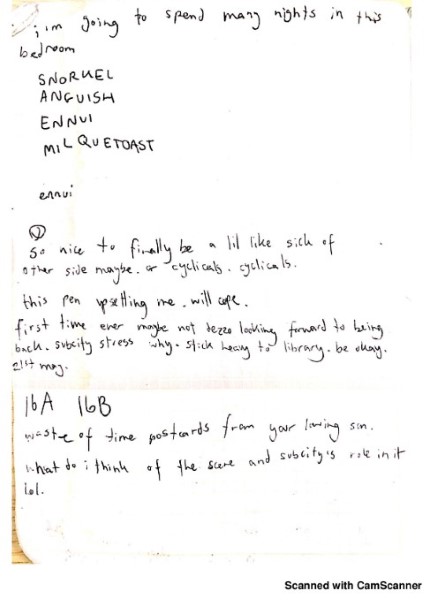 i'm going to spend many nights in this
bedroom
SNORKEL
ANGUISH
ENNUI
MILQUETOAST
ennui
so nice to finally be a lil like sick of
other side maybe. or cyclicals. cyclicals.
this pen upsetting me. will cope.
first time ever maybe not looking forward to being
back. subcity stress why. stick heavy to library. be okay.
21st may.
16A 16B
waste of time postcards from your loving son.
what do i think of the scene and subcity's role in it
lol.
Scanned with CamScanner